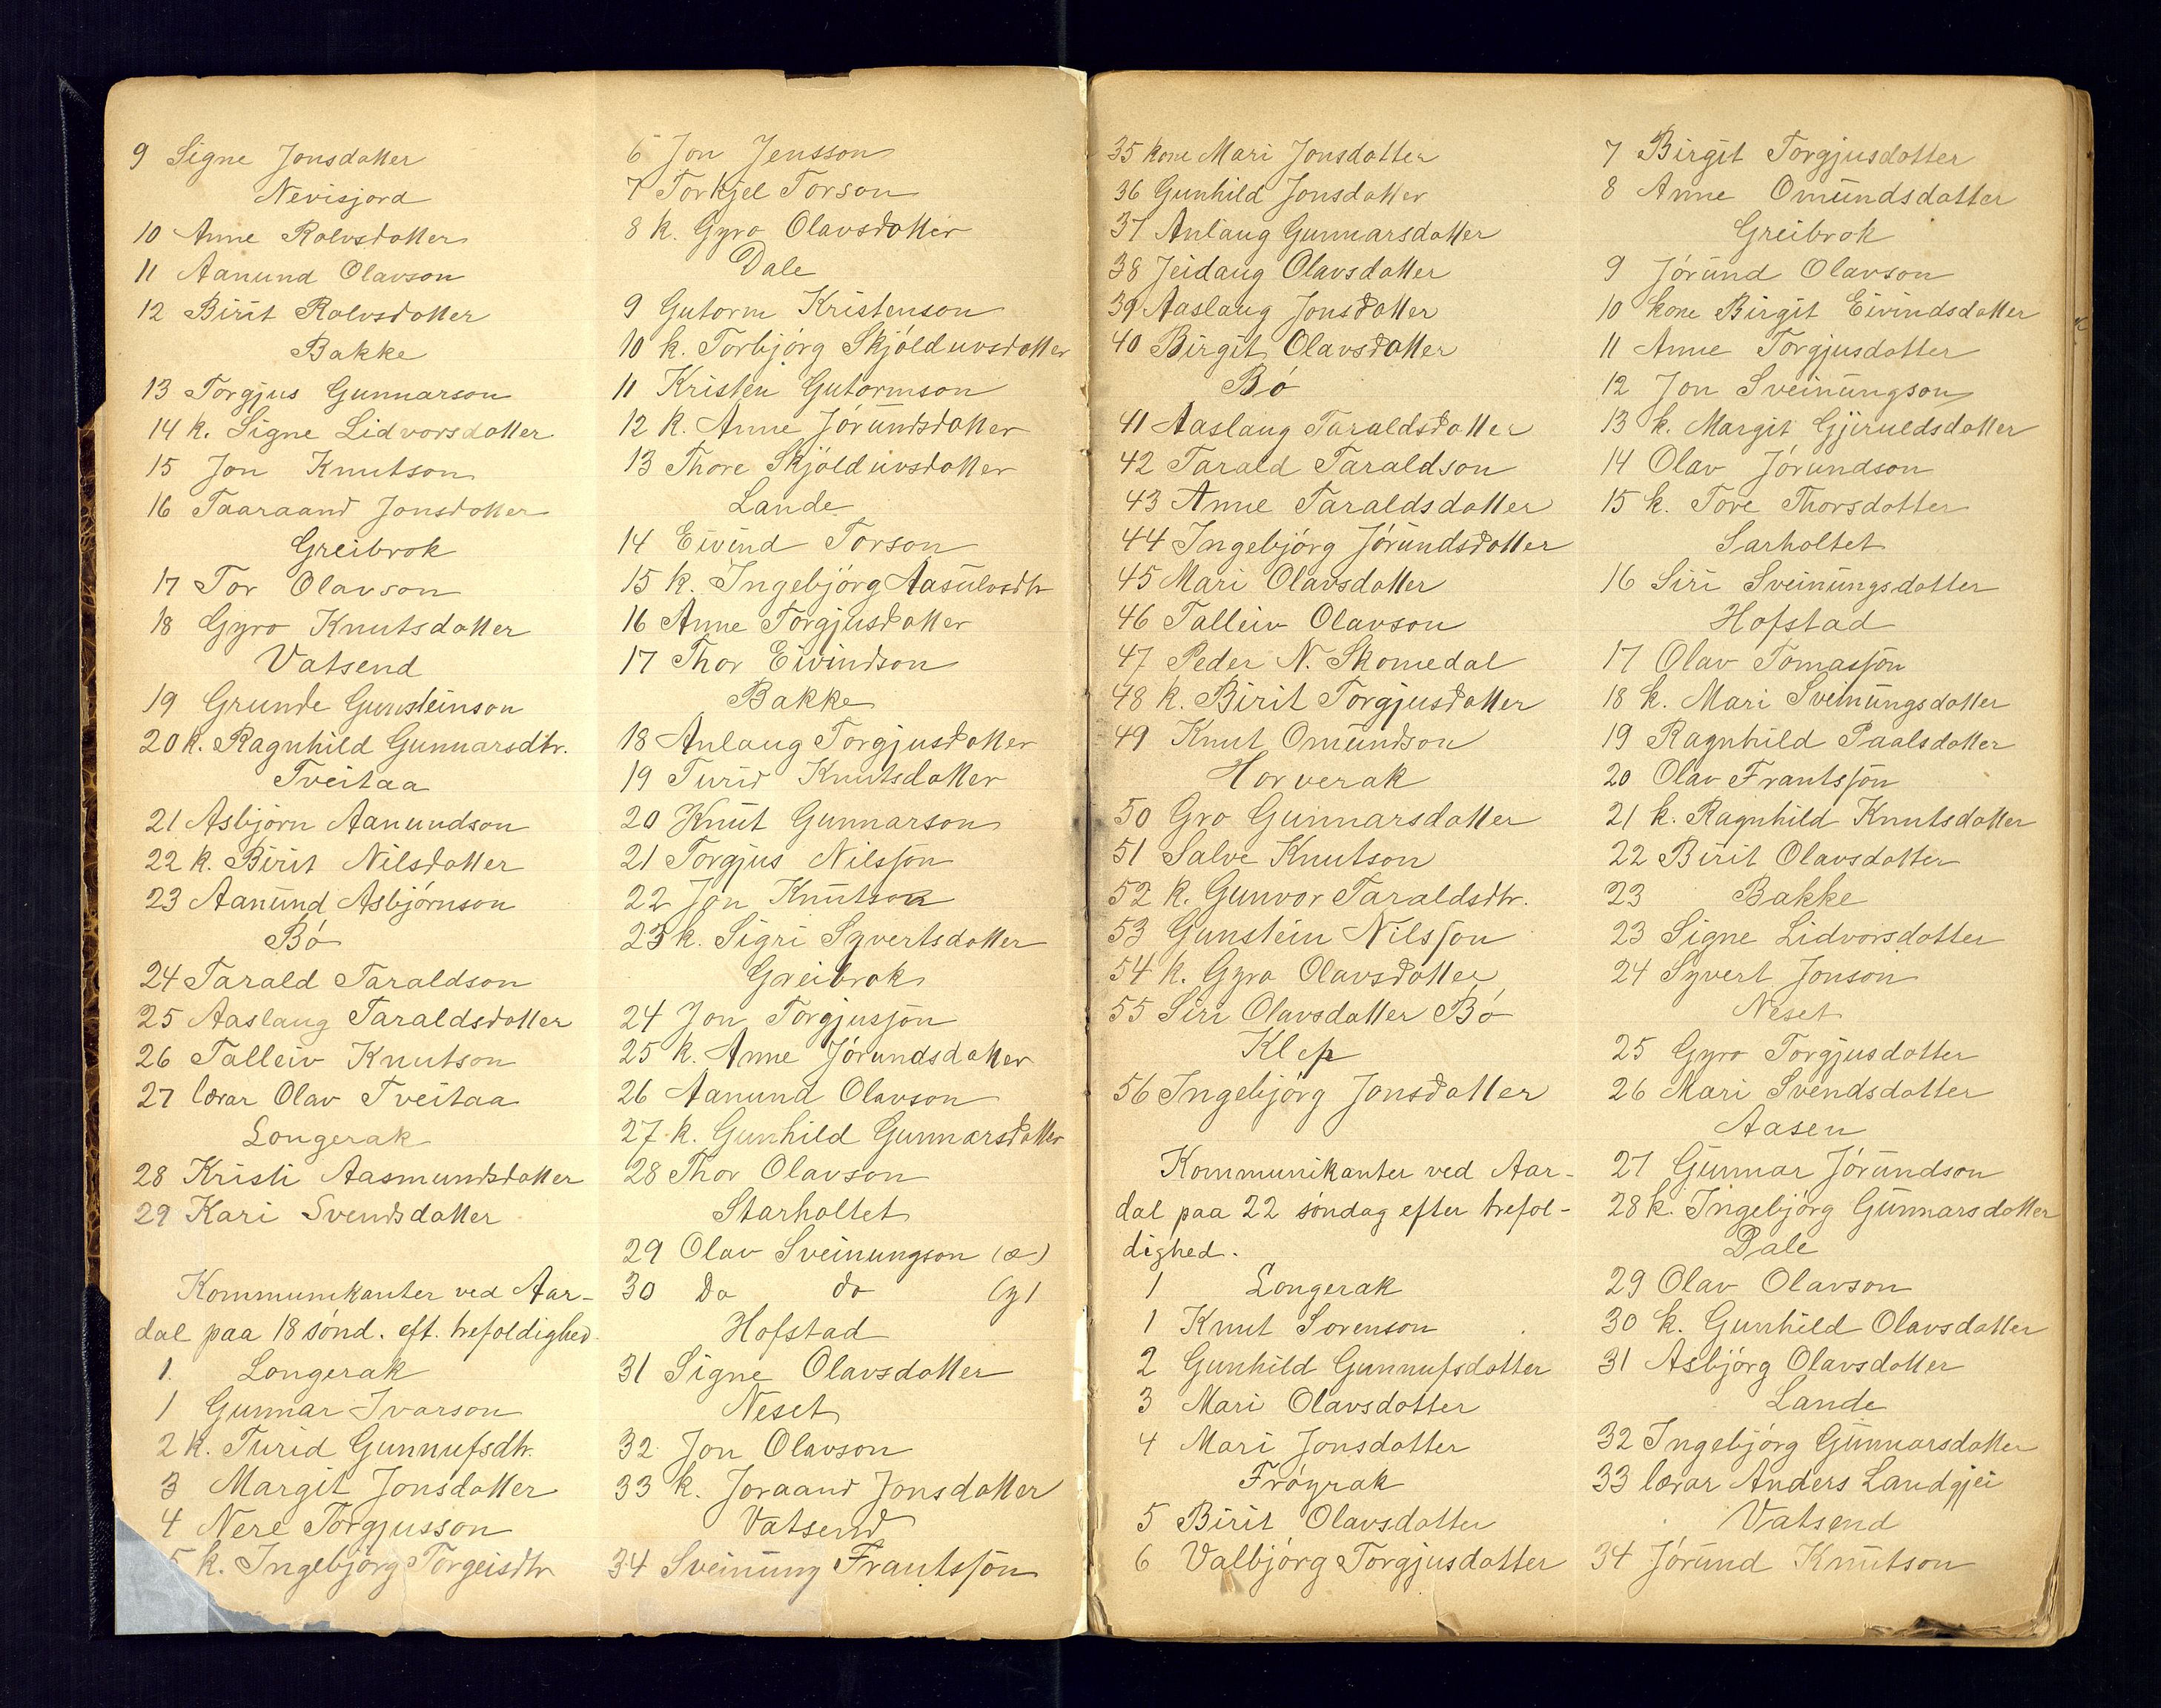 9 Signe Jonsdatter
Nevisjord
10 Anne Rolvsdatter
11 Aanund Olavson
12 Birit Rolvsdatter
Bakke
13 Torgjus Gunnarson
14 k. Signe Lidvorsdatter
15 Jon Knutson
16 Taaraand Jonsdatter
Greibrok
17 Tor Olavson
18 Gyro Knutsdatter
Vatsend
19 Grunde Gunsteinson
20 k. Ragnhild Gunnarsdtr.
Tveitaa
21 Asbjörn Aanundson
22 k. Birit Nilsdatter
23 Aanund Asbjórnson
Bó
24 Tarald Taraldson
25 Aaslaug Taraldsdatter
26 Talleiv Knutson
27 lærar Olav Tveitaa
Longerak
28 Kristi Aasmundsdatter
29 Kari Svendsdatter
Kommunikanter ved Aar-
dal paa 18 sónd. eft. trefoldighed.
1. Longerak
1 Gunnar Ivarson
2 k. Turid Gunnufsdtr.
3 Margit Jonsdatter
4 Nere Torgjusson
5 k. Ingebjörg Torgeisdtr
6 Jon Jensson
7 Torkjel Torson
8 k. Gyro Olavsdatter
Dale
9 Gutorm Kristenson
10 k. Torbjórg Skjólduvsdatter
11 Kristen Gutormson
12 k. Anne Jórundsdatter
13 Thore Skjólduvsdatter
Lande
14 Eivind Torson
15 k. Ingebjörg Aasulvsdtr
16 Anne Torgjusdatter
17 Thor Eivindson
Bakke
18 Anlaug Torgjusdatter
19 Turid Knutsdatter
20 Knut Gunnarson
21 Torgjus Nilsson
22 Jon Knutson
23 k. Sigri Syvertsdatter
Greibrok
24 Jon Torgjusson
25 k. Anne Jórundsdatter
26 Aanund Olavson
27 k. Gunhild Gunnarsdatter
28 Thor Olavson
Starholtet
29 Olav Sveinungson (æ)
30 Do do (y)
Hofstad
31 Signe Olavsdatter
Neset
32 Jon Olavson
33 k. Joraand Jonsdatter
Vatsend
34 Sveinung Frantsson
35 kone Mari Jonsdatter
36 Gunhild Jonsdatter
37 Anlaug Gunnarsdatter
38 Jeidaug Olavsdatter
39 Aaslaug Jonsdatter
40 Birgit Olavsdatter
Bó
41 Aaslaug Taraldsdatter
42 Tarald Taraldson
43 Anne Taraldsdatter
44 Ingebjórg Jórundsdatter
45 Mari Olavsdatter
46 Talleiv Olavson
47 Peder N. Skomedal
48 k. Birit Torgjusdatter
49 Knut Omundson
Horverak
50 Gro Gunnarsdatter
51 Salve Knutson
52 k. Gunvor Taraldsdtr.
53 Gunstein Nilsson
54 k. Gyro Olavsdatter
55 Siri Olavsdatter Bó
Klep
56 Ingebjórg Jonsdatter
Kommunikanter ved Aar-
dal paa 22 sóndag efter trefol-
dighed.
1 Longerak
1 Knut Sorenson
2 Gunhild Gunnufsdatter
3 Mari Olavsdotter
4 Mari Jonsdatter
Fróyrak
5 Birit Olavsdatter
6 Valbjórg Torgjusdatter
7 Birgit Torgjusdotter
8 Anne Omundsdatter
Greibrok
9 Jórund Olavson
10 kone Birgit Eivindsdatter
11 Anne Torgjusdatter
12 Jon Sveinungson
13 k. Margit Gjeruldsdatter
14 Olav Jórundson
15 k. Tore Thorsdotter
Sarholtet
16 Siri Sveinungsdatter
Hofstad
17 Olav Tomasson
18 k. Mari Sveinungsdatter
19 Ragnhild Paalsdatter
20 Olav Frantsson
21 k. Ragnhild Knutsdatter
22 Birit Olavsdatter
23 Bakke
23 Signe Lidvorsdotter
24 Syvert Jonson
Neset
25 Gyro Torgjusdatter
26 Mari Svendsdatter
Aasen
27 Gunnar Jórundson
28 k. Ingebjörg Gunnarsdatter
Dale
29 Olav Olavson
30 k. Gunhild Olavsdatter
31 Asbjórg Olavsdatter
Lande
32 Ingebjórg Gunnarsdatter
33 lærar Anders Landgjei
Vatsend
34 Jórund Knutson